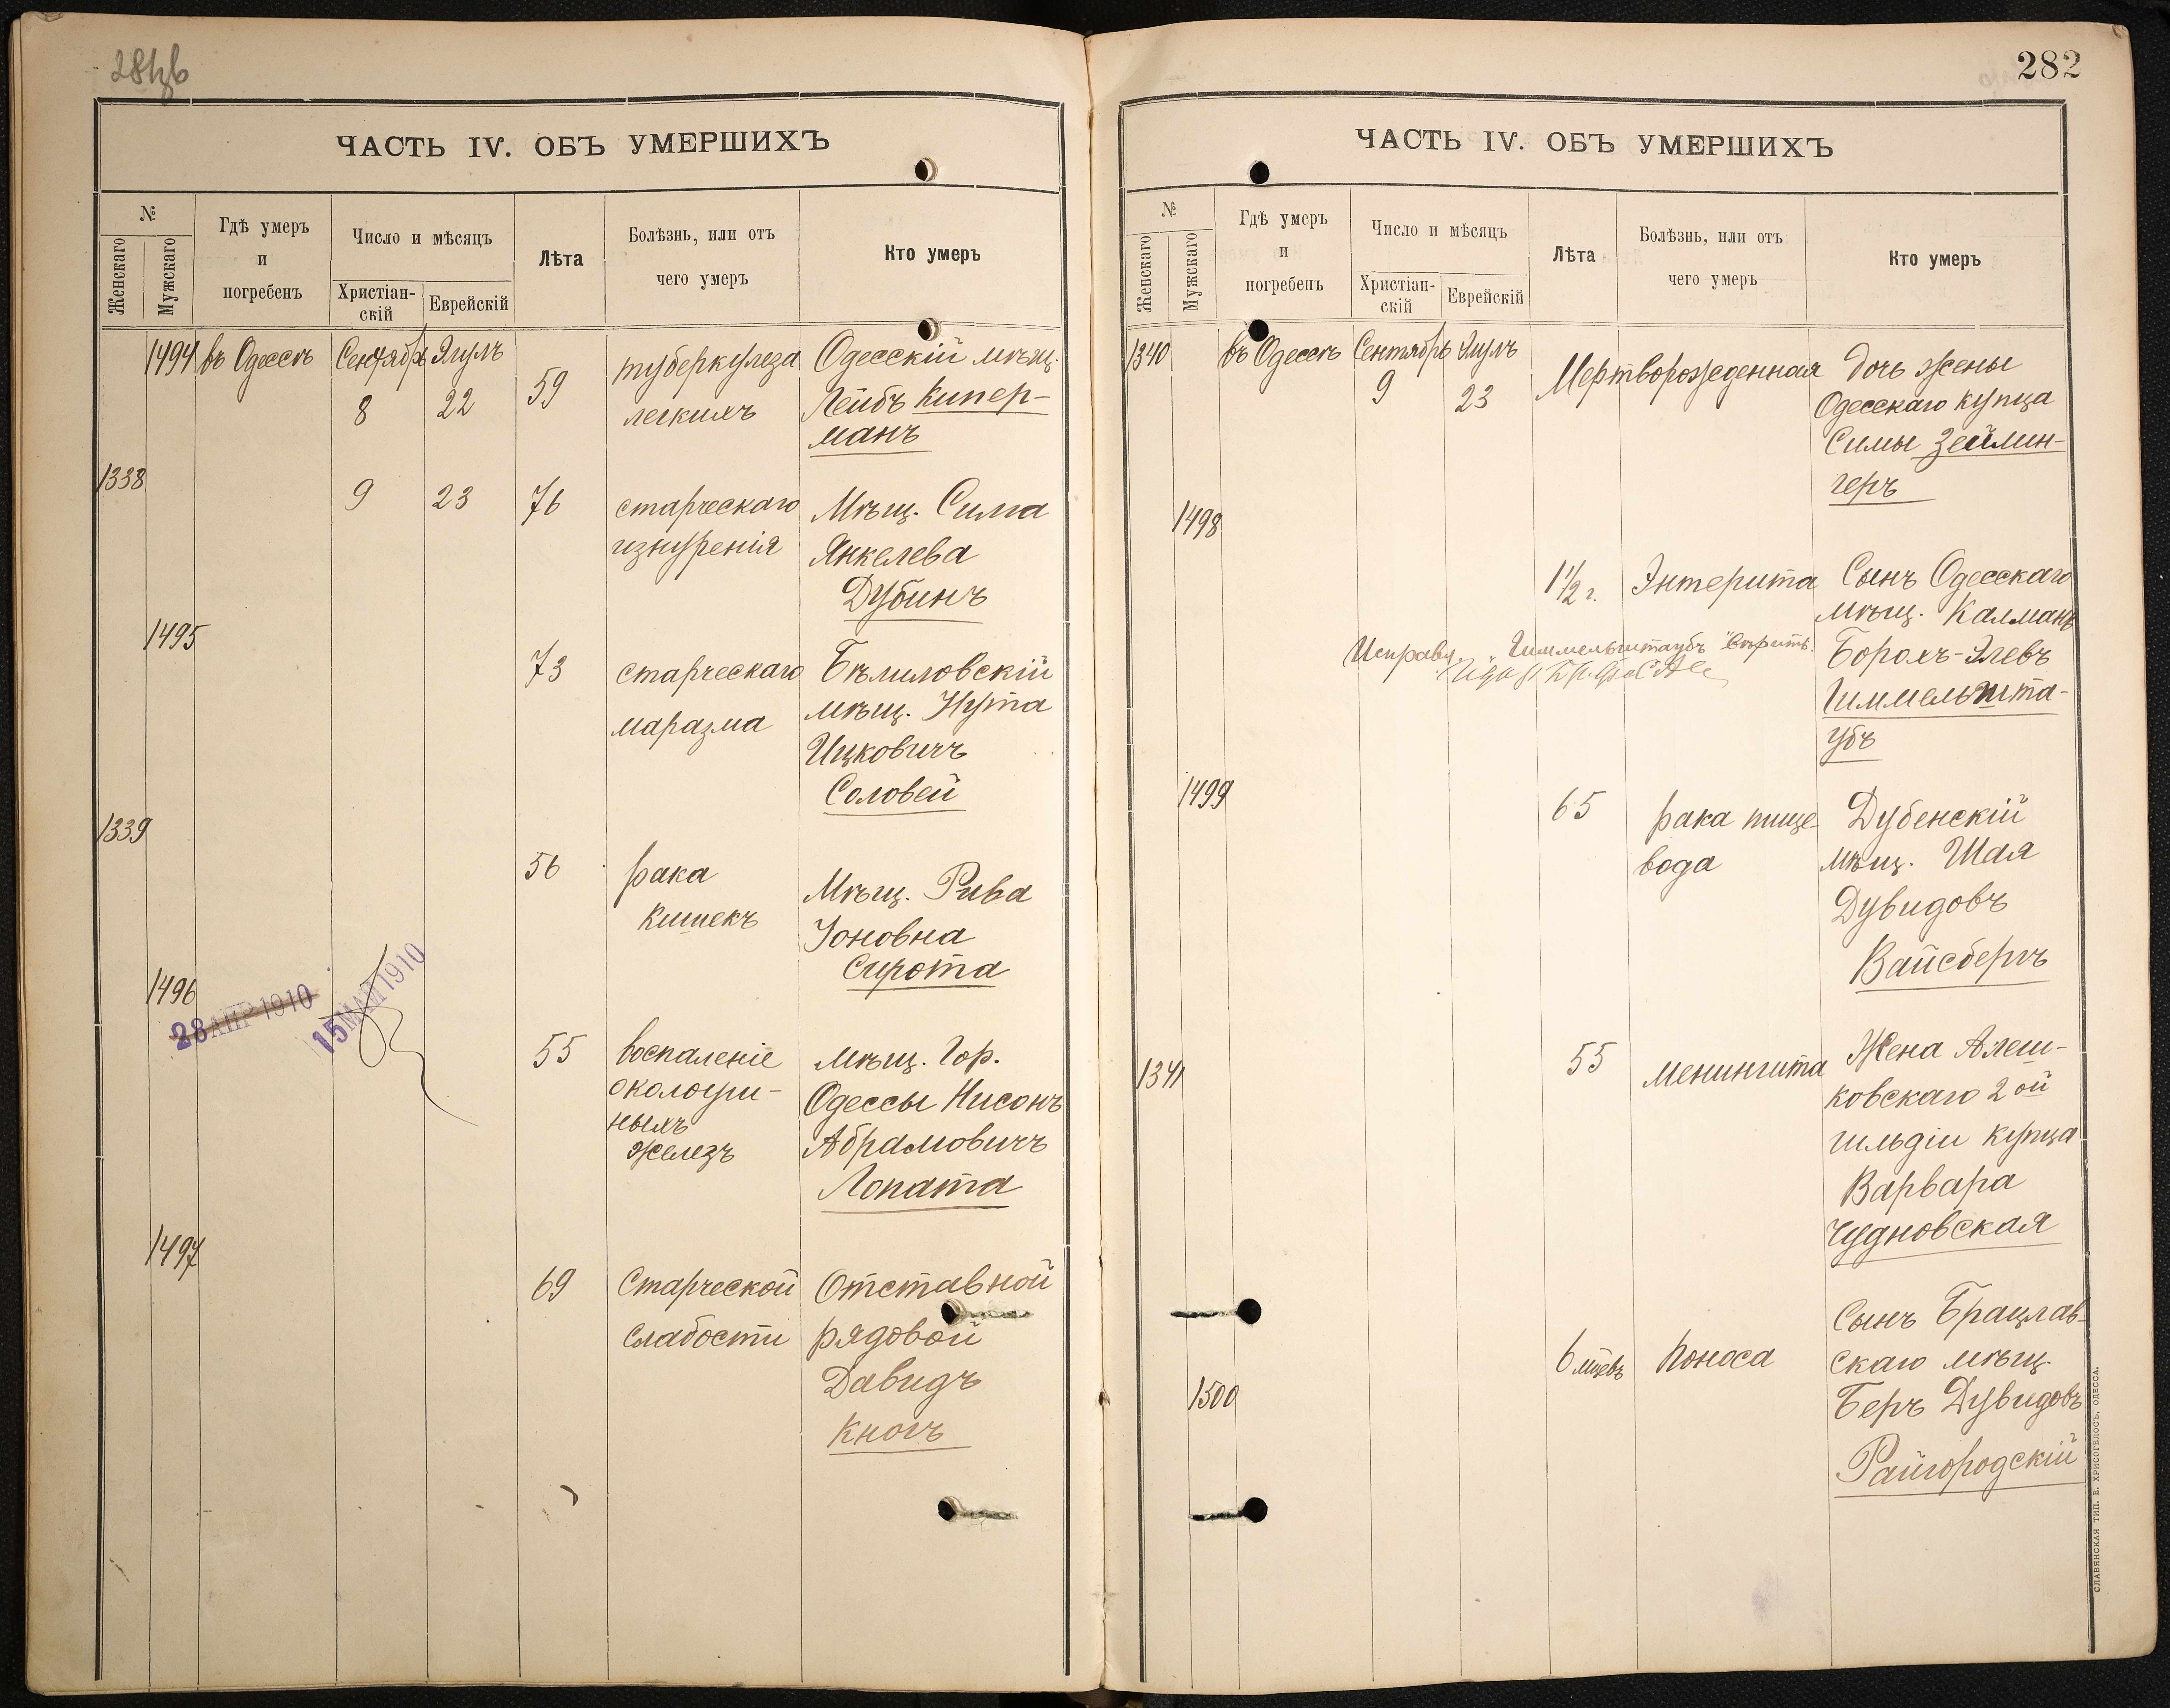 ЧАСТЬ IV. ОБЪ УМЕРШИХЪ
№
Женскаго
Мужскаго
Гдѣ умеръ
и
погребенъ
Число и мѣсяцъ
Христіан-
скій
Еврейскій
Лѣта
Болѣзнь, или отъ
чего умеръ
Кто умеръ
1494
въ Одессѣ
Сентябрь
8
Элулъ
22
59
туберкулеза
легкихъ
Одесскій мѣщ.
Лейбъ Кипер-
манъ
1338
9
23
76
старческаго
изнуренія
Мѣщ. Сима
Янкелева
Дубинъ
1495
73
старческаго
маразма
Бѣлиловскій
мѣщ. Нута
Ицковичъ
Соловей
1339
56
рака
кишекъ
Мѣщ. Рива
Іоновна
Сирота
1496
28 АПР 1910
15 МАЙ 1910
55
воспаленіе
околоуш-
ныхъ
железъ
мѣщ. гор.
Одессы Нисонъ
Абрамовичъ
Лопата
1497
69
Старческой
слабости
Отставной
рядовой
Давидъ
Кногъ
282
ЧАСТЬ IV. ОБЪ УМЕРШИХЪ
№
Женскаго
Мужскаго
Гдѣ умеръ
и
погребенъ
Число и мѣсяцъ
Христіан-
скій
Еврейскій
Лѣта
Болѣзнь, или отъ
чего умеръ
Кто умеръ
1340
въ Одессѣ
Сентябрь
9
Элулъ
23
Мертворожденная
дочь жены
Одесскаго купца
Симы Зейлин-
геръ
1498
1 1/2 г.
Энтерита
Сынъ Одесскаго
мѣщ. Калманъ
Борохъ-Элевъ
Гиммельшта-
убъ
Исправл. „Гиммельштаубъ" вѣрить.
1499
65
рака пище-
вода
Дубенскій
мѣщ. Шая
Дувидовъ
Вайсбергъ
1341
55
менингита
Жена Алеш-
ковскаго 2ой
гильдіи купца
Варвара
Чудновская
1500
6 мѣсяцъ
поноса
Сынъ Брацлав-
скаго мѣщ.
Беръ Дувидовъ
Райгородскій
СЛАВЯНСКАЯ ТИП. Е. ХРИСОГЕЛОСЪ, ОДЕССА.